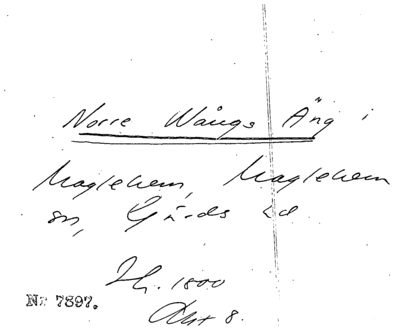 Norre Wångs Äng i
Maglehem, Maglehem
sn, Gärds hd
1800
Nr 7897.
Akt 8.